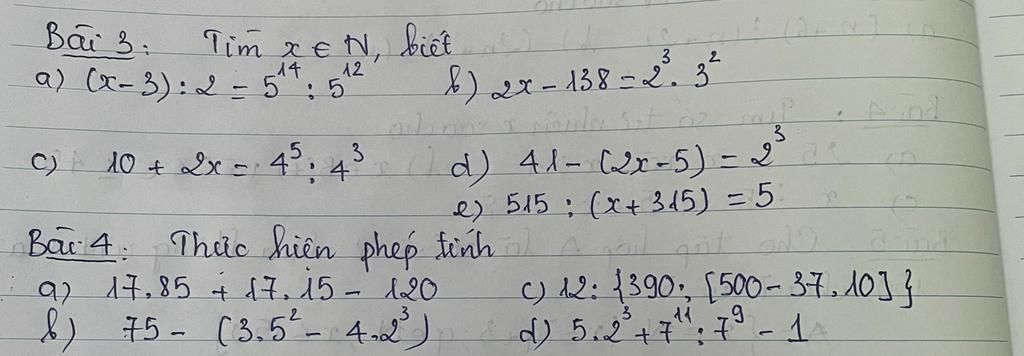 Bài 3: Tìm x ∈ N, biết
a) (x-3) : 2 = 5¹⁴ : 5¹² b) 2x - 138 = 2³. 3²
c) 10 + 2x = 4⁵ : 4³ d) 41 - (2x-5) = 2³
e) 515 : (x+315) = 5
Bài 4: Thực hiện phép tính
a) 17.85 + 17.15 - 120 c) 12: {390: [500-37.10]}
b) 75 - (3.5² - 4.2³) d) 5.2³ + 7¹¹ : 7⁹ - 1